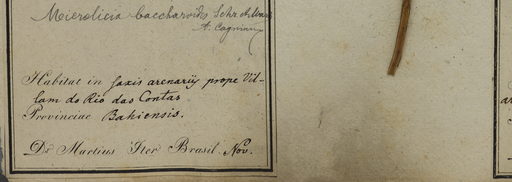 Microlicia baccharoides Schr. et Mart
A. Cogniaux
Habitat in saxis arenariis prope Vil-
lam do Rio das Contas
Provinciae Bahiensis.
Dr. Martius Iter Brasil. Nov.